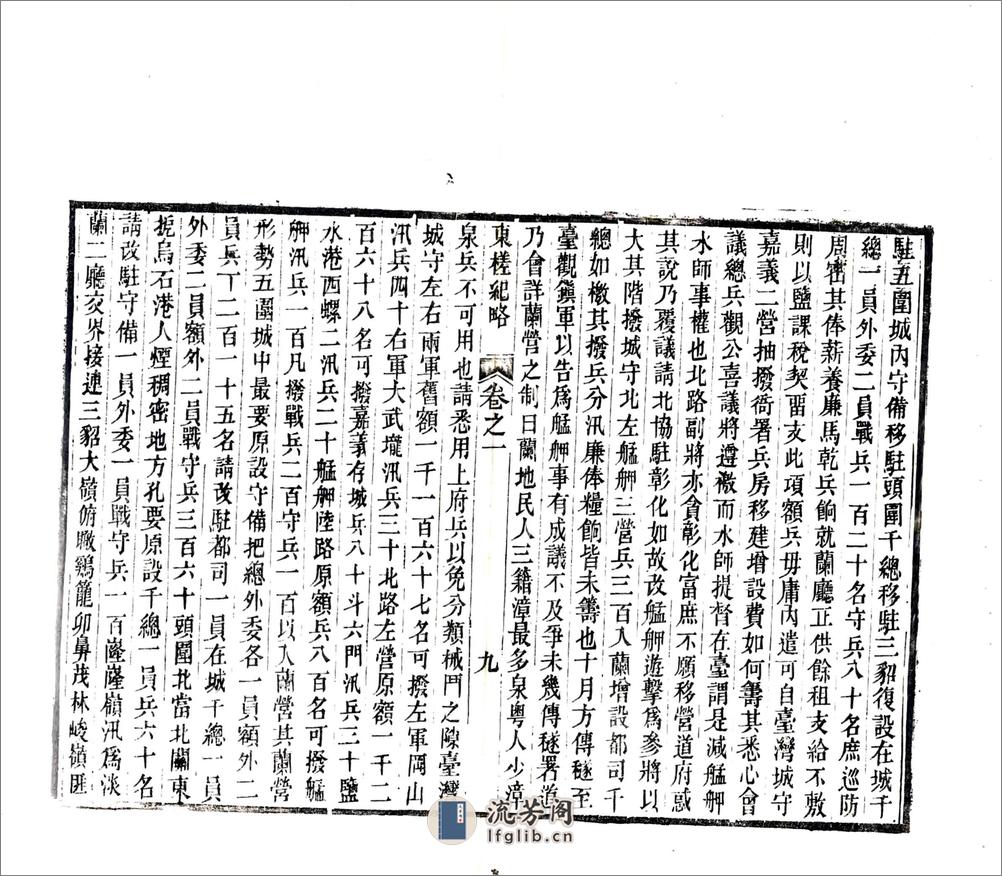 駐五圍城內守備移駐頭圍千總移駐三貂復設在城千
總一員外委二員戰兵一百二十名守兵八十名庶巡防
周密其俸薪養廉馬乾兵餉就蘭廳正供餘租支給不敷
則以鹽課稅契畱支此項額兵毋庸內遣可自臺灣城守
嘉義二營抽撥衙署兵房移建增設費如何籌其悉心會
議總兵觀公喜議將遵檄而水師提督在臺謂是減艋舺
水師事權也北路副將亦貪彰化富庶不願移營道府惑
其說乃覆議請北協駐彰化如故改艋舺遊擊爲參將以
大其階撥城守北左艋舺三營兵三百入蘭增設都司千
總如檄其撥兵分汛廉俸糧餉皆未籌也十月方傳穟至
臺觀鎮軍以告爲艋舺事有成議不及爭未幾傳穟署道
乃會詳蘭營之制曰蘭地民人三籍漳最多泉粵人少漳
東槎紀略
卷之一
九
泉兵不可用也請悉用上府兵以免分類械鬥之隙臺灣
城守左右兩軍舊額一千一百六十七名可撥左軍岡山
汛兵四十右軍大武壠汛兵三十北路左營原額一千二
百六十八名可撥嘉義存城兵八十斗六門汛兵三十鹽
水港西螺二汛兵二十艋舺陸路原額兵八百名可撥艋
舺汛兵一百凡撥戰兵二百守兵一百以入蘭營其蘭營
形勢五圍城中最要原設守備把總外委各一員額外二
員兵丁二百一十五名請改駐都司一員在城千總一員
外委二員額外二員戰守兵三百六十頭圍北當北關東
扼烏石港人煙稠密地方孔要原設千總一員兵六十名
請改駐守備一員外委一員戰守兵一百嶐嶐嶺汛爲淡
蘭二廳交界接連三貂大嶺俯瞰鷄籠卯鼻茂林峻嶺匪
流芳阁
lfglib.cn